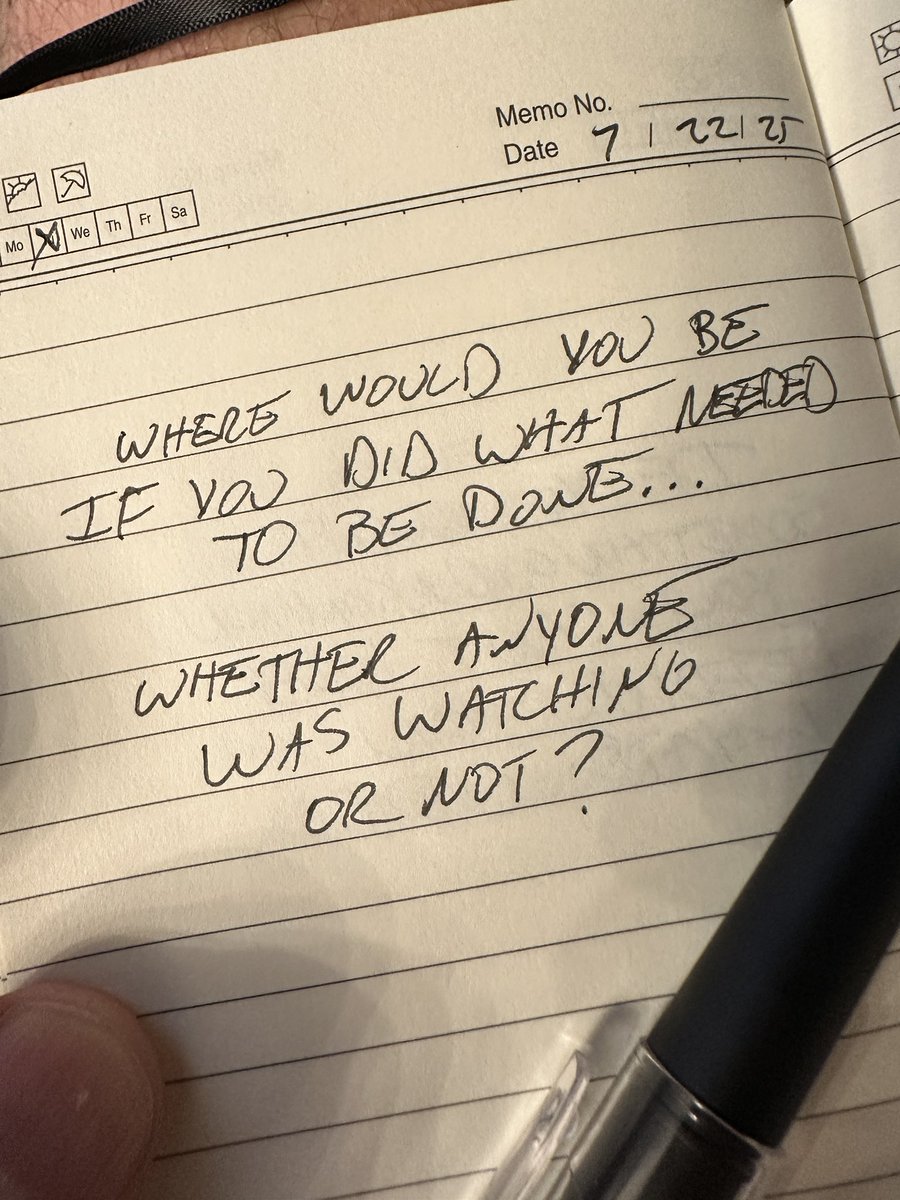 Memo No.
Date 7 / 22 / 25
Mo We Th Fr Sa
WHERE WOULD YOU BE
IF YOU DID WHAT NEEDED
TO BE DONE...
WHETHER ANYONE
WAS WATCHING
OR NOT?